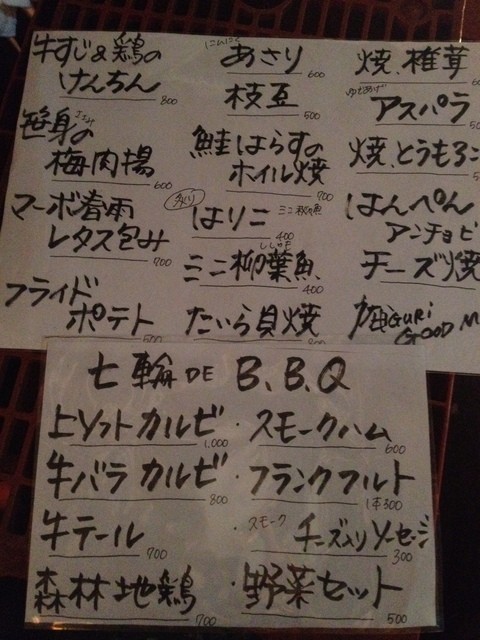 牛すじ&鶏の
けんちん
800
笹身の
梅肉揚
600
マーボ春雨
レタス包み
700
フライド
ポテト
500
にんにく
あさり
600
枝豆
500
鮭はらすの
ホイル焼
700
炙り
はりこ
400
ししゃも
ミニ柳葉魚
400
たいら貝焼
焼、椎茸
600
アスパラ
焼、とうもろこ
はんぺん
アンチョビ
チーズ焼
GOOD M
七輪 DE B.B.Q
上ソフトカルビ
1,000
牛バラ カルビ
800
牛テール
700
森林地鶏
700
・スモークハム
600
・フランクフルト
1本300
・スモーク
チーズ入りソーセージ
300
・野菜セット
500